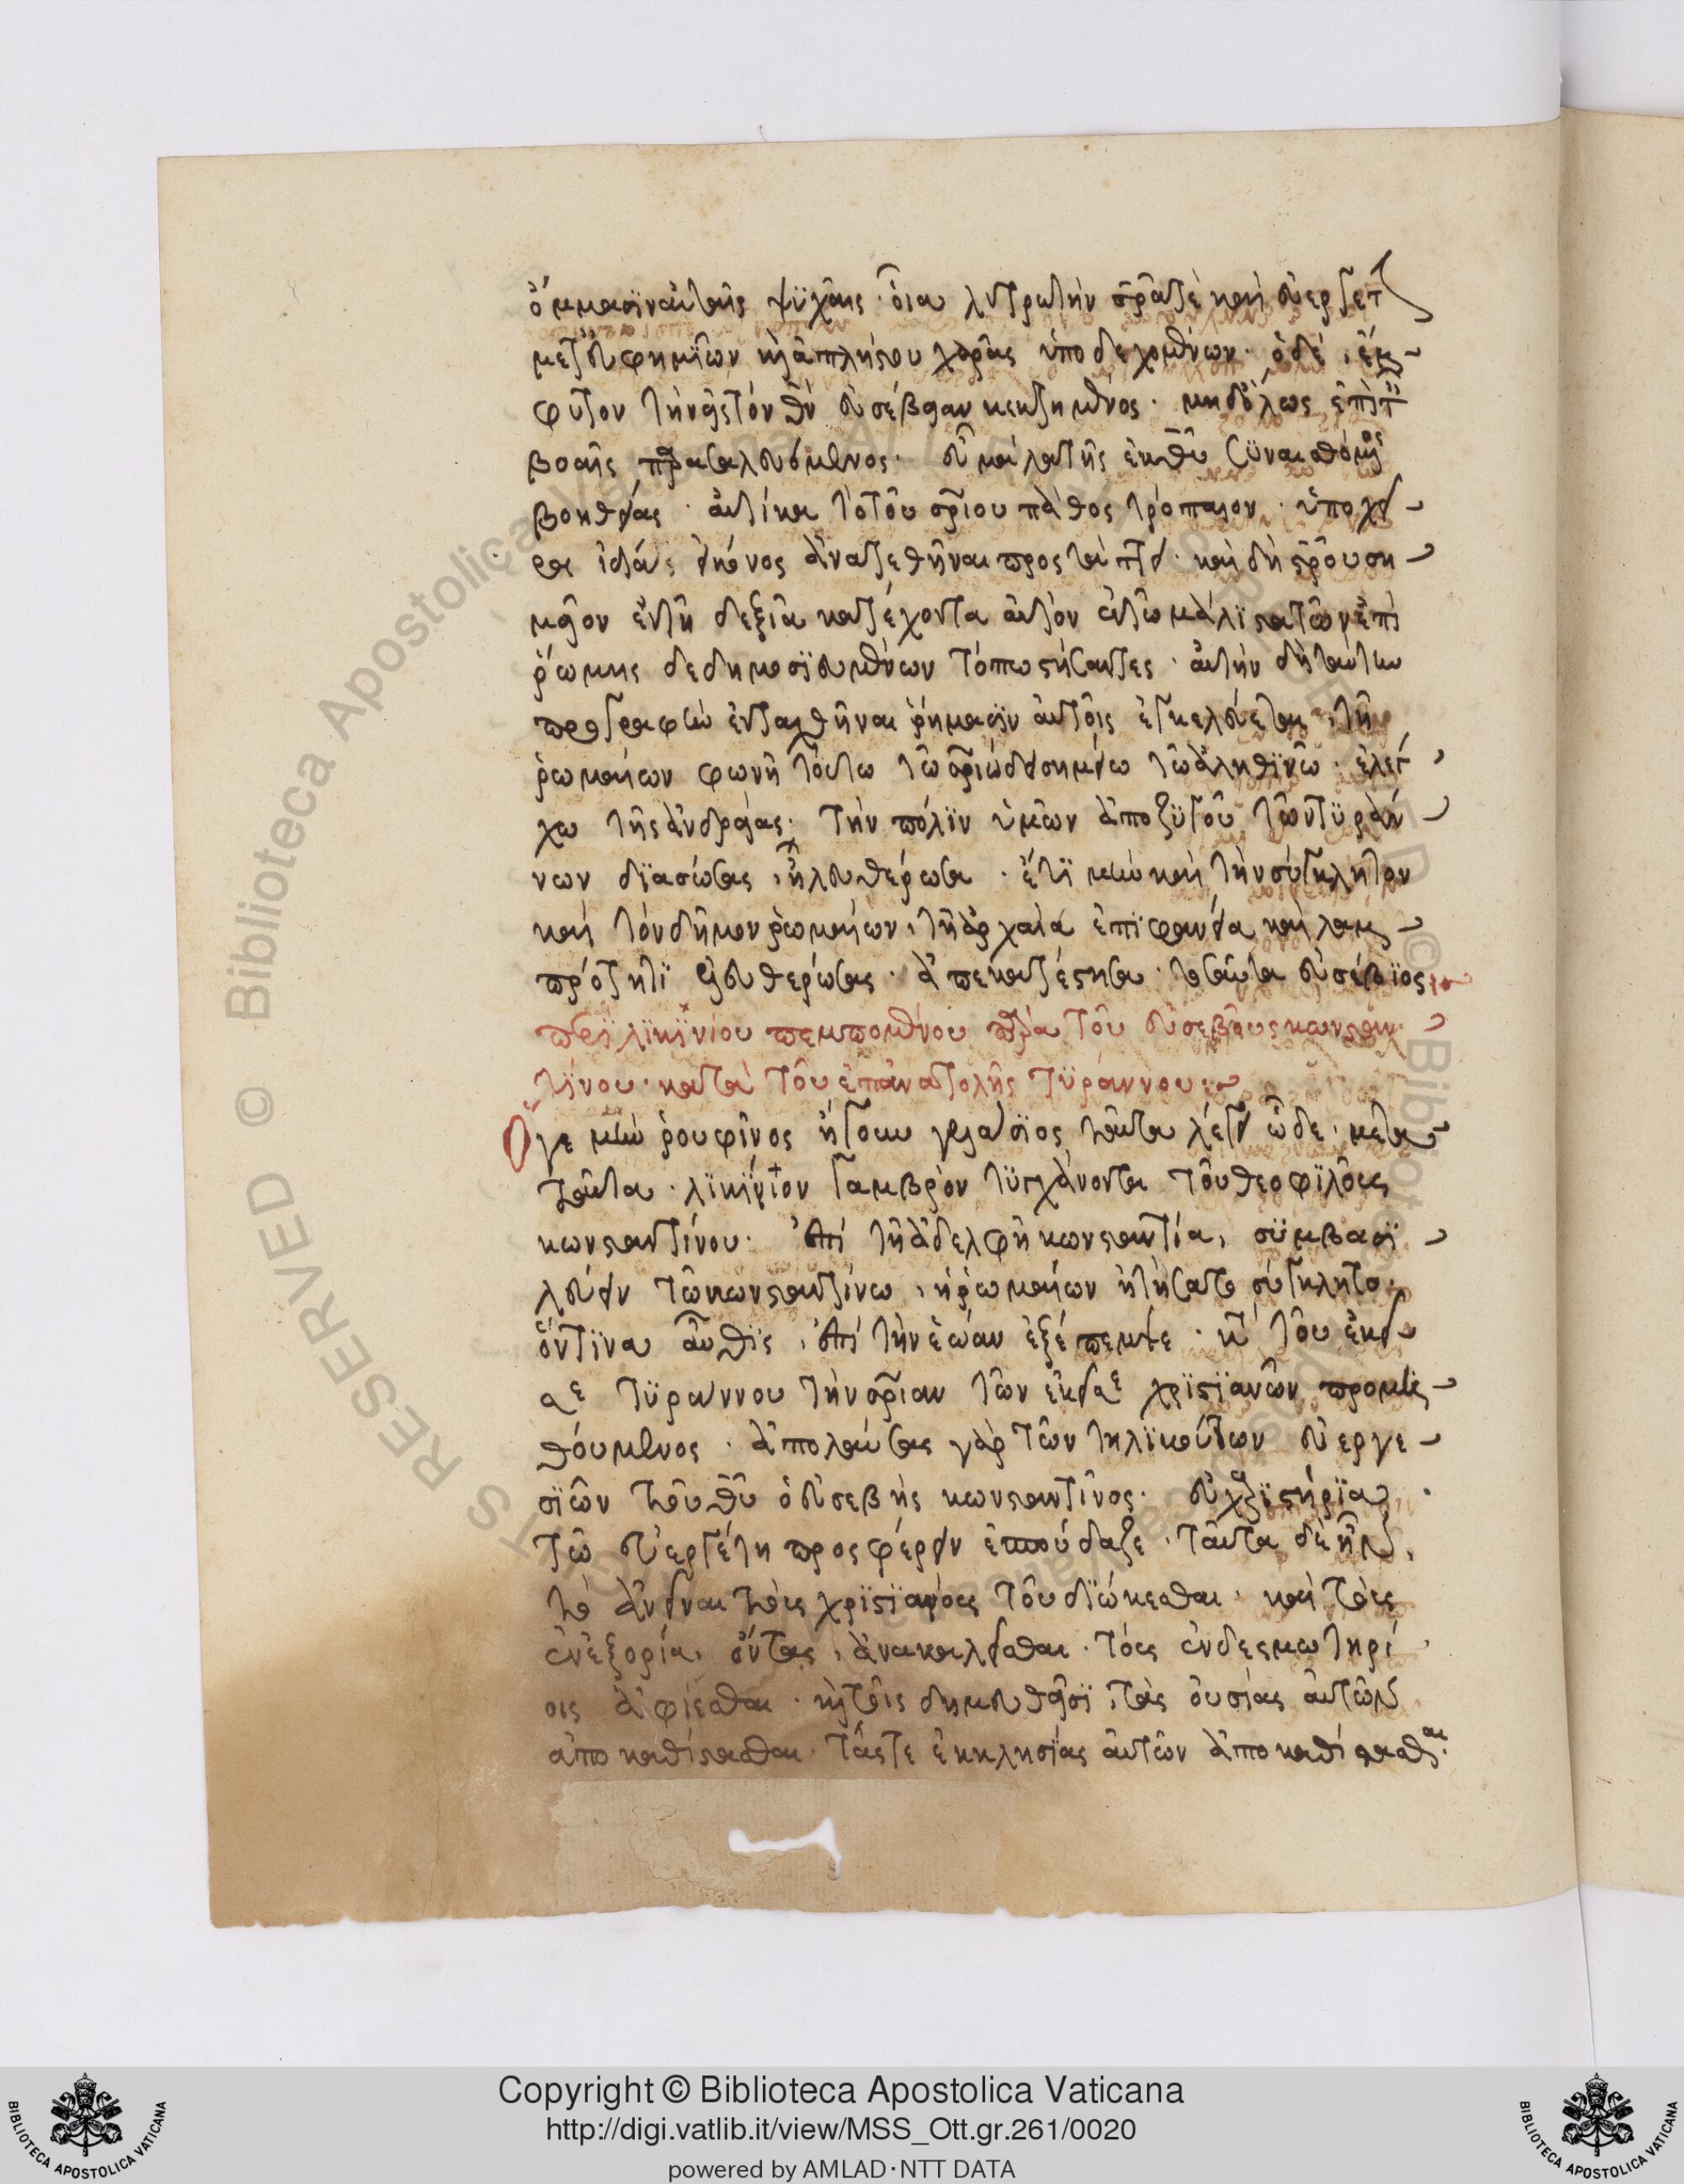 ὄμμασϊν αὐταῖς ψϋχαῖς· οἷα λυτρωτὴν σρᾱτὲ καὶ εὐεργέτ
μετ εὐφημϊῶν κ ἀπλήστου χαρᾶς ὑποδεχομένων· ὁ δέ, ἔμ
φυτον τὴν εἰς τὸν θν εὐσέβειαν κεκτημένος· μηδόλως ἐπὶ τ
βοαῖς παρασαλευόμενος· εὖ μάλα τῆς ἐκ θῦ ςϋναισθόμενος
βοηθείας· αὐτίκα τὸ τοῦ σρίου πάθος τρόπαιον· ὑπὸ χεῖ
ρα ἰδίας εἰκόνος ἀνατεθῆναι προστάττει· καὶ δὴ σρου ση
μεῖον ἐν τῆ δεξιᾶ κατέχοντα αὐτὸν ἐν τῶ μάλϊστα τῶν ἐπὶ
ῥώμης δεδημοσϊευμένων τόπω στήσαντες· αὐτὴν δὴ ταύτην
προγραφὴν ἐνταχθῆναι ῥήμασϊν αὐτοῖς ἐγκελεύεται, τῆ
ῥωμαίων φωνῆ τούτω τῶ σριώδει σημείω τῶ ἀληθϊνῶ· ἐλέγ
χω τῆς ἀνδρείας· τὴν πόλϊν ὑμῶν ἀπὸ ζϋγοῦ τῶν τϋράν
νων δϊασώσας, ἠλευθέρωσα· ἔτϊ μὴν καὶ τὴν σύγκλητον
καὶ τὸν δῆμον ῥωμαίων, τῆ ἀρχαία ἐπϊφανεία καὶ λαμ
πρότητϊ ἐλευθερώσας· ἀπεκατέστησα· ταῦτα εὐσέβϊος
περὶ λϊκϊνίου πεμπομένου παρὰ τοῦ εὐσεβοῦς κωνσταν
τίνου· κατὰ τοῦ ἐπ ἀνατολῆς τϋράννου:
Ὅ γε μὴν ῥουφῖνος ἤγουν γελάσϊος ταῦτα λέγει ὧδε· μετὰ
ταῦτα· λϊκίνϊον γαμβρὸν τϋγχάνοντα τοῦ θεοφϊλοῦς
κωνσταντίνου· ἐπὶ τῆ ἀδελφῆ κωνσταντία, σϋμβασϊ
λεύειν τῶ κωνσταντίνω, ἡ ῥωμαίων ἠτήσατο σύγκλητο·
ὅντϊνα αὖθϊς, ἐπὶ τὴν ἑώαν ἐξέπεμψε· κ τοῦ ἐκεῖ
σε τϋράννου τὴν σρίαν τῶν ἐκεῖσε χρϊστϊανῶν προμη
θούμενος· ἀπολαύσας γὰρ τῶν τηλϊκούτων εὐεργε
σϊῶν τοῦ θῦ ὁ εὐσεβὴς κωνσταντῖνος· εὐχαρϊστήρϊα
τῶ εὐεργέτη προσφέρειν ἐσπούδαζε· ταῦτα δὲ ἦν,
τὸ ἀνεῖναι τοὺς χρϊστϊανοὺς τοῦ δϊώκεσθαι· καὶ τοὺς
ἐν ἐξορία, ὄντας, ἀνακαλεῖσθαι· τοὺς ἐν δεσμωτηρί
οις ἀφίεσθαι· κ τοῖς δημευθεῖσϊ, τὰς οὐσίας αὐτῶν
ἀποκαθίστασθαι· τάς τε ἐκκλησίας αὐτῶν ἀποκαθίστασθαι·
© Biblioteca Apostolica Vaticana
Copyright © Biblioteca Apostolica Vaticana
http://digi.vatlib.it/view/MSS_Ott.gr.261/0020
powered by AMLAD·NTT DATA
BIBLIOTECA APOSTOLICA VATICANA
BIBLIOTECA APOSTOLICA VATICANA